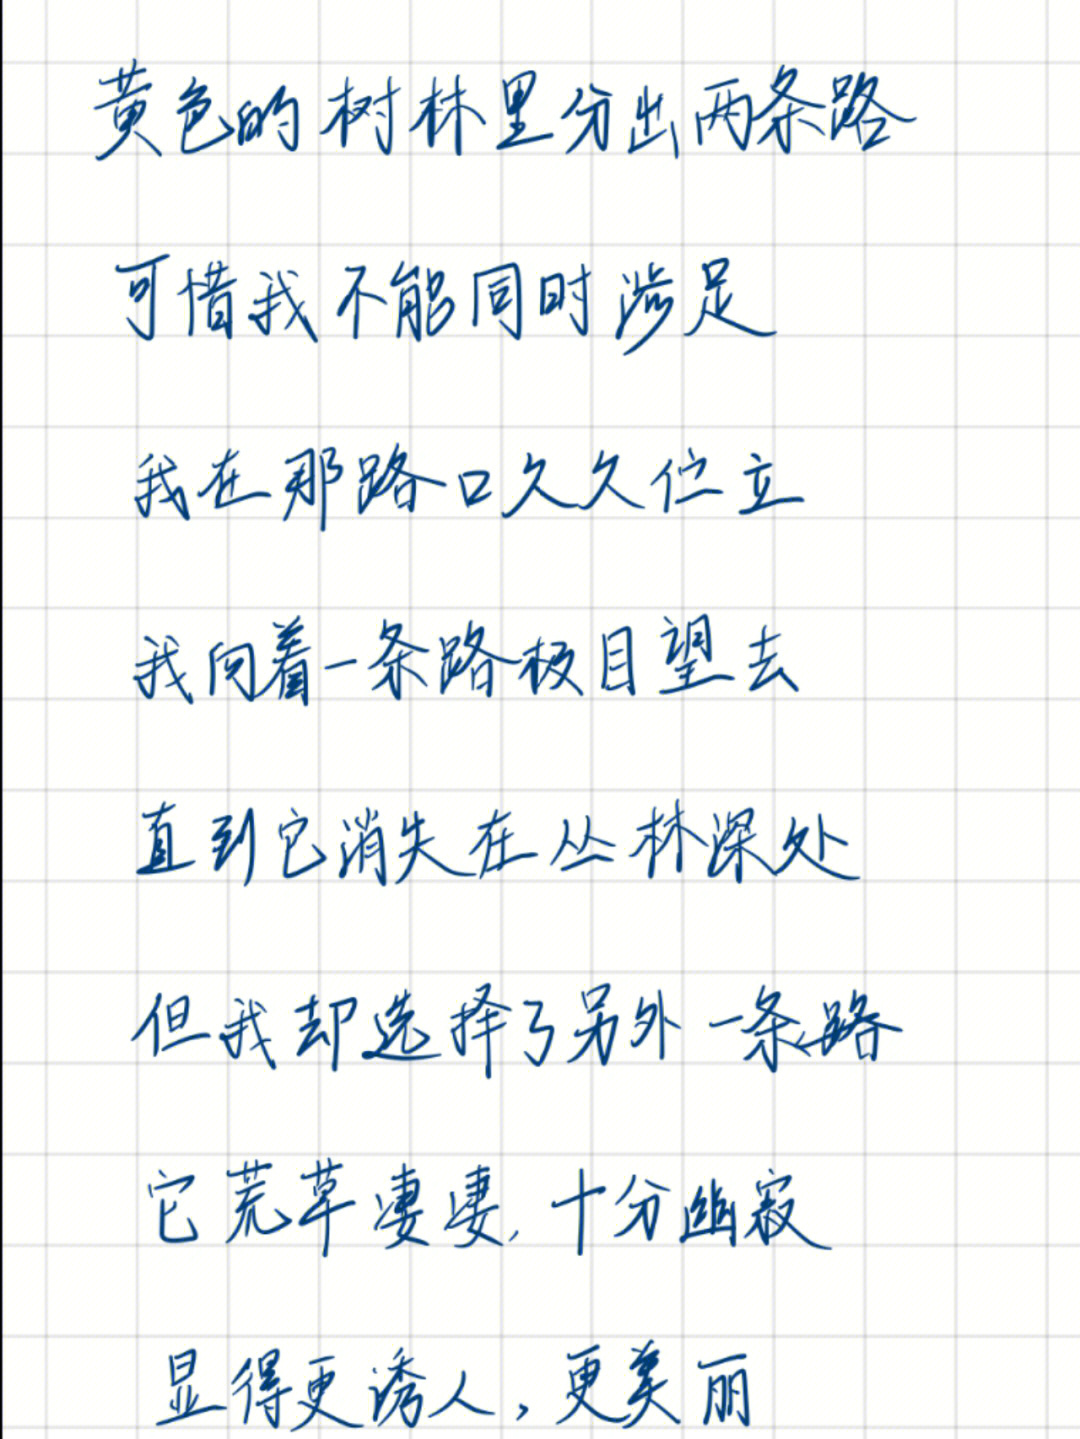 黄色的树林里分出两条路
可惜我不能同时涉足
我在那路口久久伫立
我向着一条路极目望去
直到它消失在丛林深处
但我却选择了另外一条路
它荒草凄凄,十分幽寂
显得更诱人,更美丽